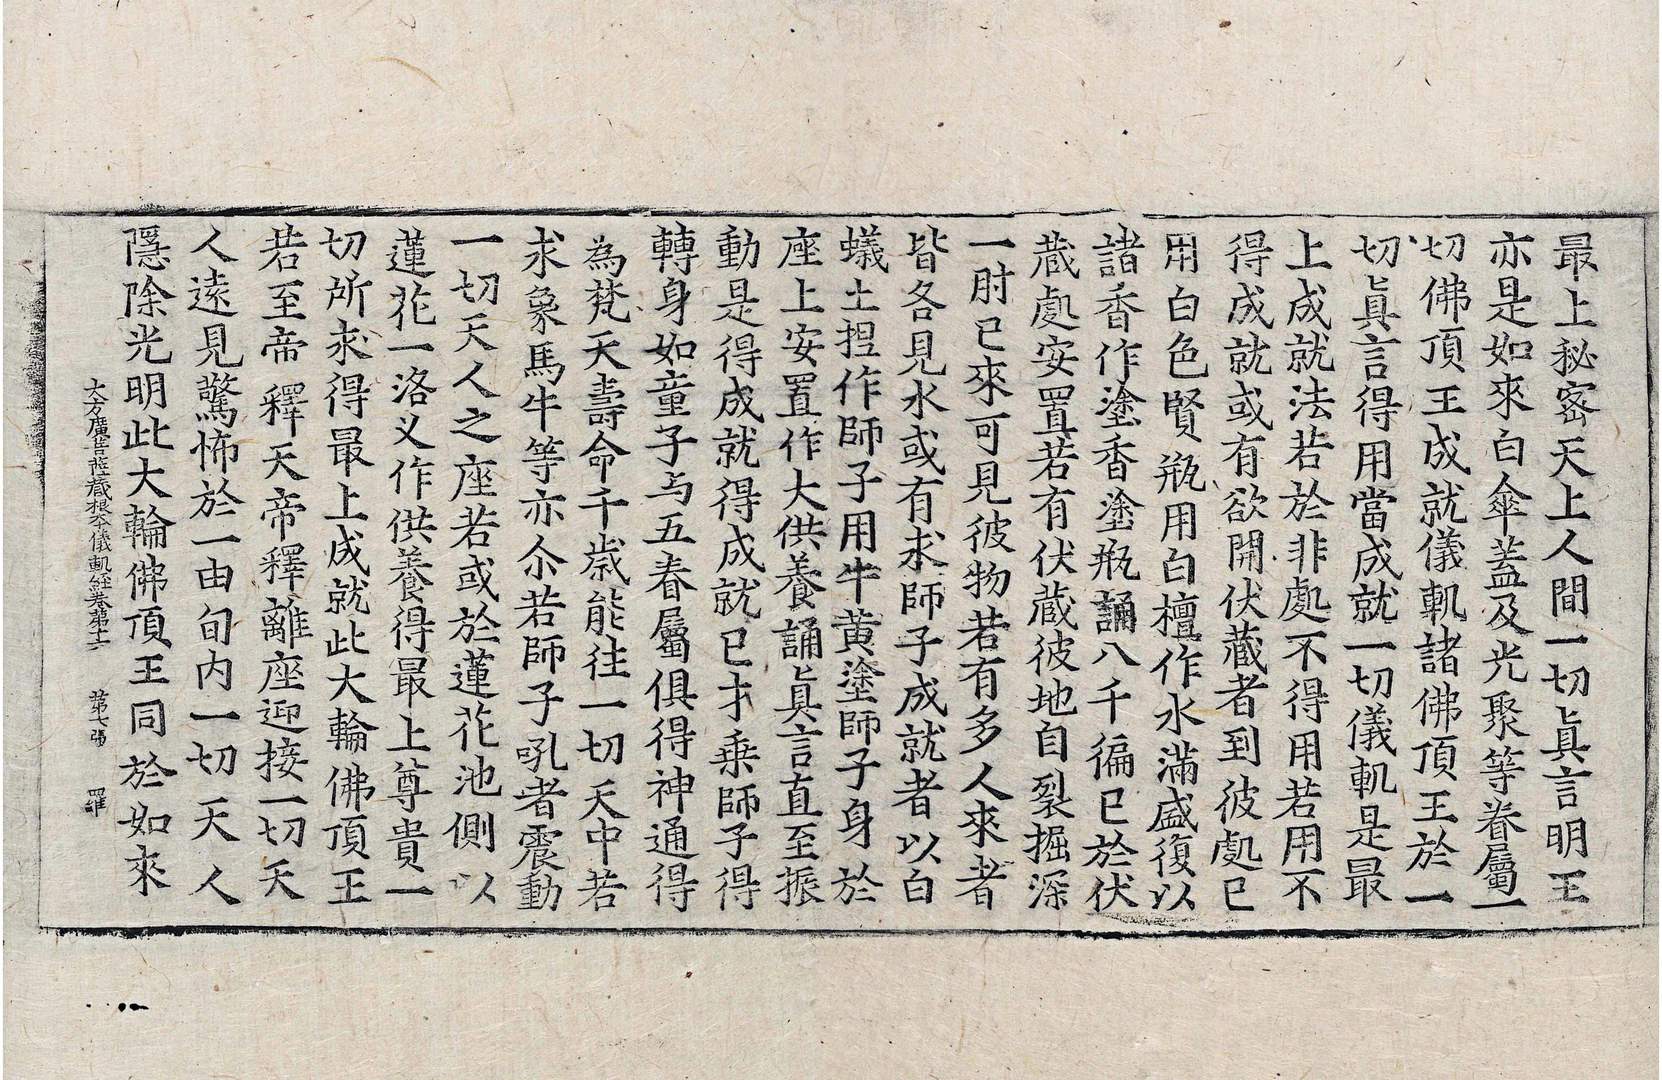 最上秘密天上人間一切眞言明王
亦是如來白傘蓋及光聚等眷屬一
切佛頂王成就儀軌諸佛頂王於一
切眞言得用當成就一切儀軌是最
上成就法若於非處不得用若用不
得成就或有欲開伏藏者到彼處已
用白色賢瓶用白檀作水滿盛復以
諸香作塗香塗瓶誦八千徧已於伏
藏處安置若有伏藏彼地自裂掘深
一肘已來可見彼物若有多人來者
皆各見水或有求師子成就者以白
蟻土揑作師子用牛黃塗師子身於
座上安置作大供養誦眞言直至振
動是得成就得成就已才乗師子得
轉身如童子与五眷屬俱得神通得
為梵天壽命千歳能往一切天中若
求象馬牛等亦尒若師子吼者震動
一切天人之座若或於蓮花池側以
蓮花一洛义作供養得最上尊貴一
切所求得最上成就此大輪佛頂王
若至帝釋天帝釋離座迎接一切天
人遠見驚怖於一由旬内一切天人
隱除光明此大輪佛頂王同於如來
大方廣菩薩藏根夲儀軌經卷第十二 第七張 羅